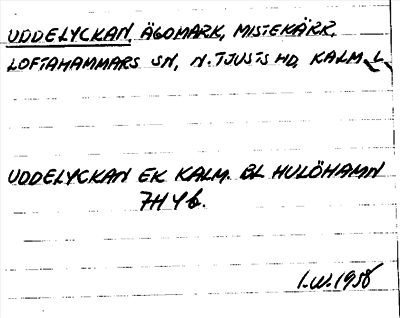 UDDELYCKAN, ÄGOMARK, MISTEKÄRR,
LOFTAHAMMARS SN, N. TJUSTS HD, KALM. L.
UDDELYCKAN EK KALM. BL HULÖHAMN
7H 4b.
I.W. 1958